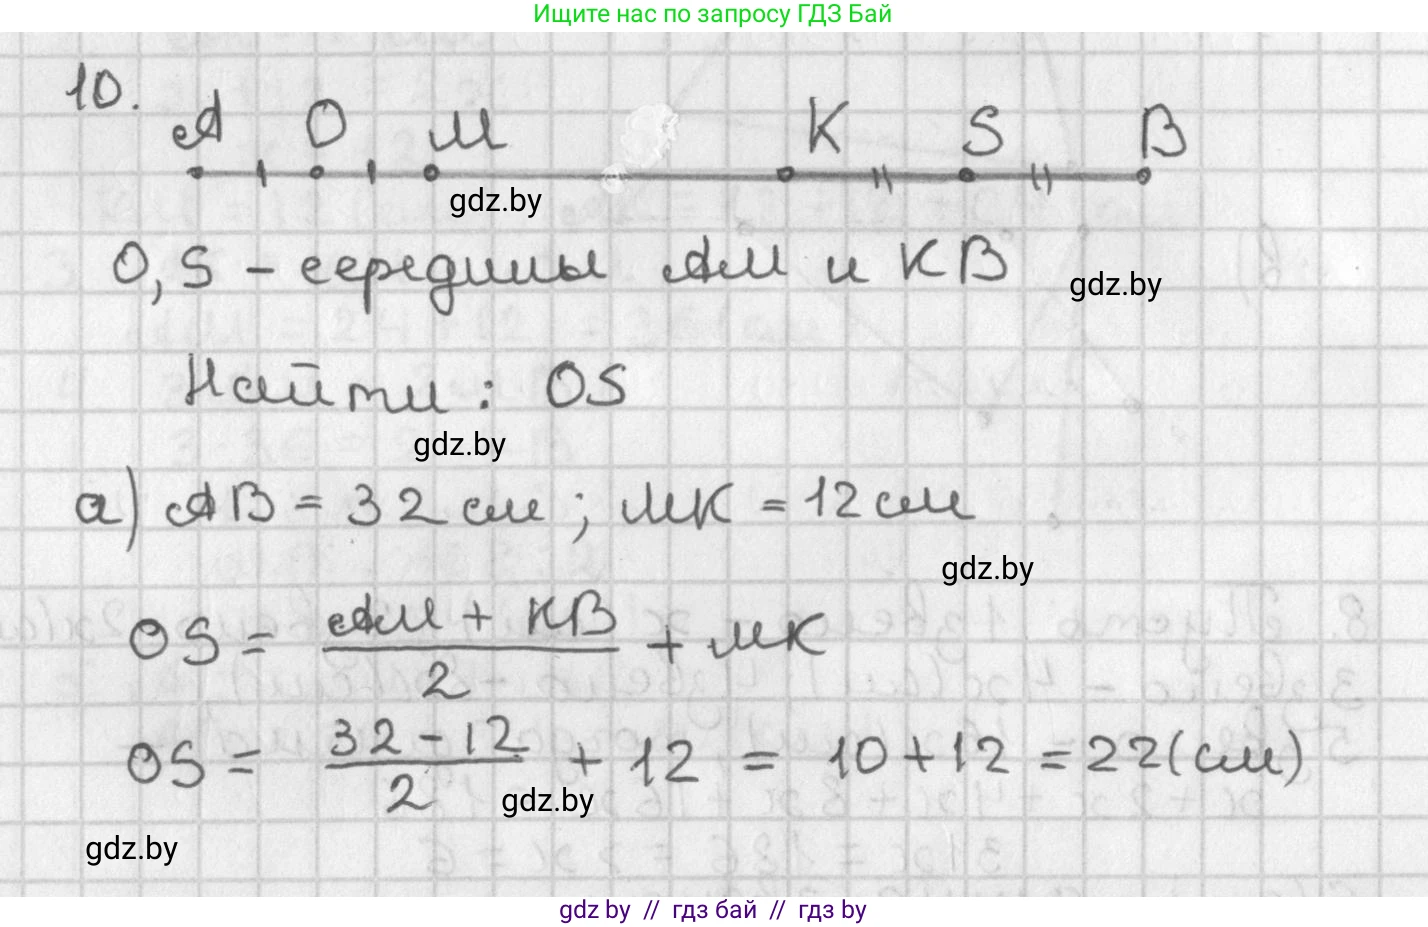 Ищите нас по запросу ГДЗ Бай
10.
A O M K S B
gdz.by
O, S - середины AM и KB
gdz.by
Найти: OS
gdz.by
а) AB = 32 см; MK = 12 см
gdz.by
OS = (AM + KB)/2 + MK
OS = (32 - 12)/2 + 12 = 10 + 12 = 22 (см)
gdz.by
gdz.by
gdz by // гдз бай // гдз by